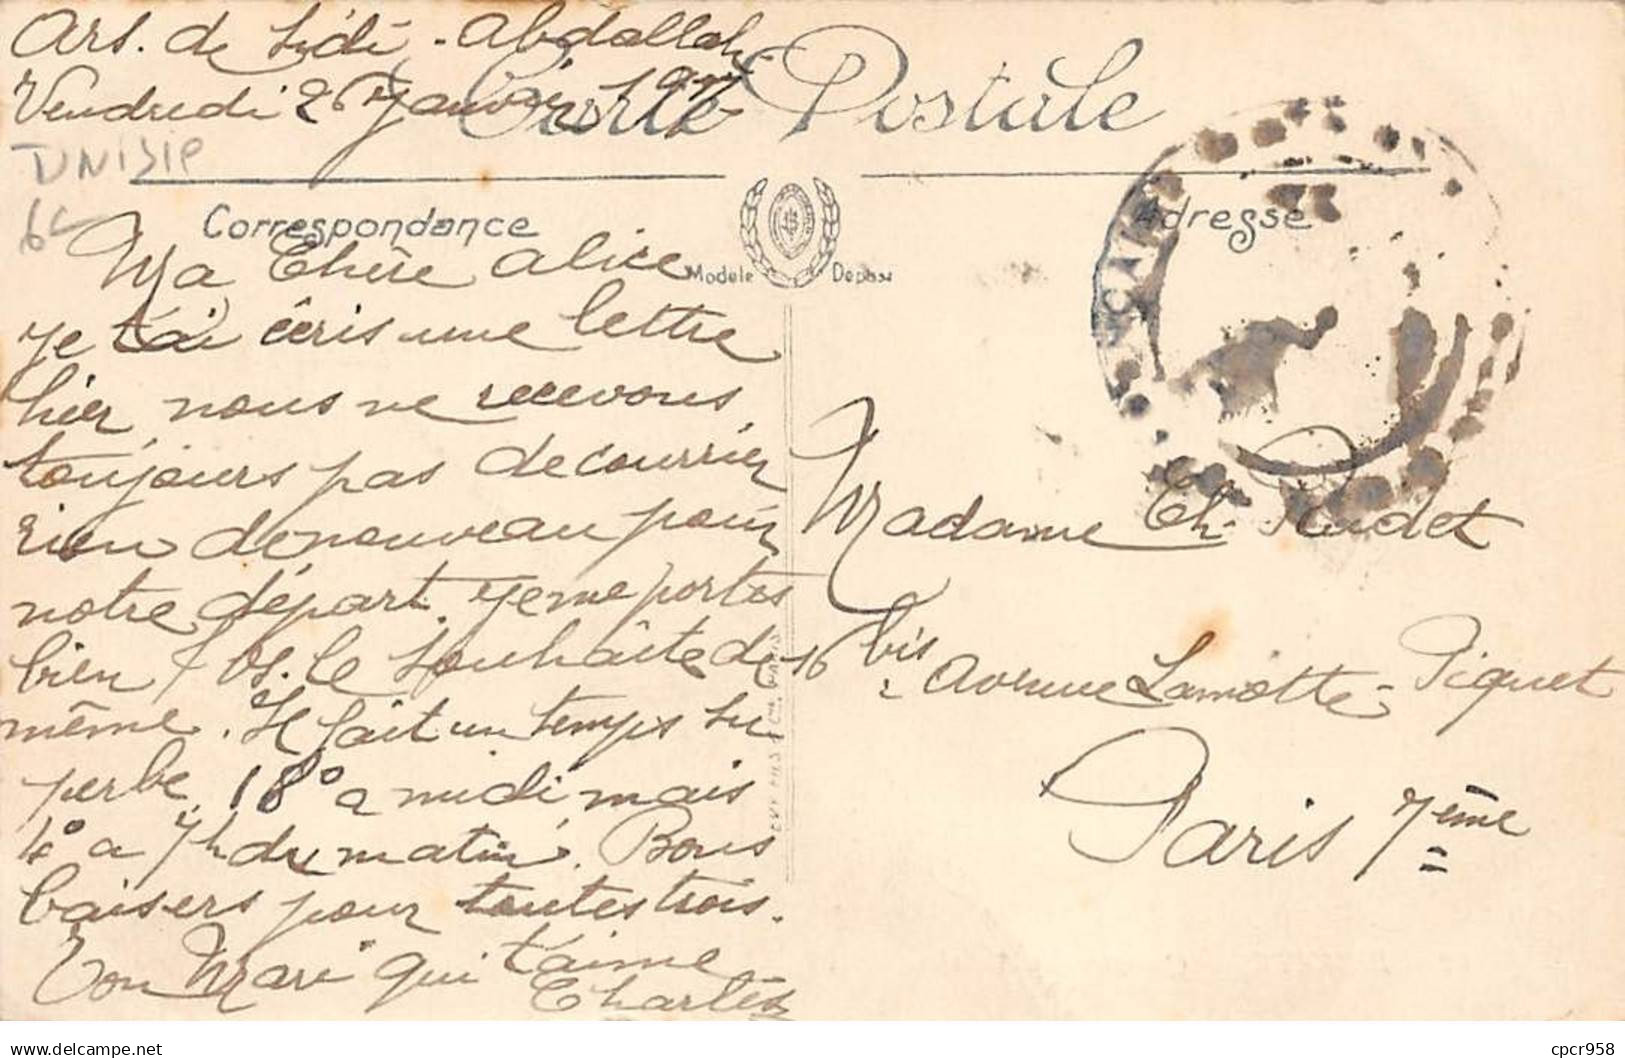 Ars. de Sidi-Abdallah
Vendredi 26 Janvier 1917
Carte Postale
TUNISIE
Correspondance
Adresse
Modèle Déposé
Ma Chère Alice
je t'ai écris une lettre
hier nous ne recevons
toujours pas de courrier
rien de nouveau pour
notre départ. je me portes
bien & vs. le souhaite de
même. Il fait un temps su
perbe, 18° a midi mais
4° a 7h du matin. Bons
baisers pour toutes trois.
Ton Mari qui t'aime
Charles
Madame Ch. Rudet
16 bis avenue Lamotte-Piquet
Paris 7ème
www.delcampe.net
cpcr958